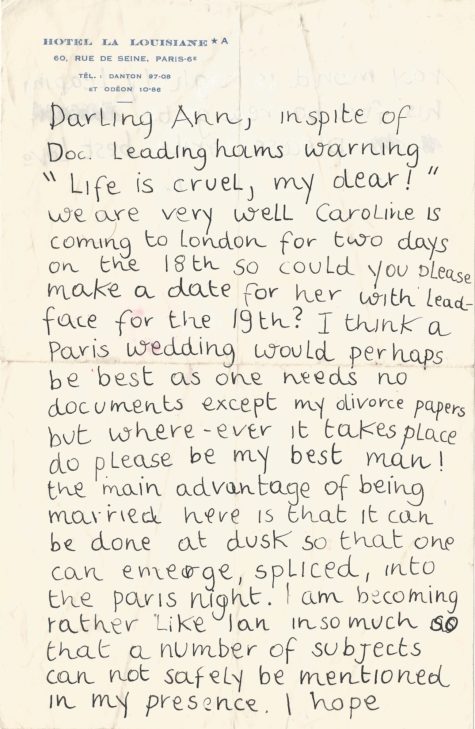 HOTEL LA LOUISIANE ★ A
60, RUE DE SEINE, PARIS-6E
TÉL.: DANTON 97-08
ET ODÉON 10-86
Darling Ann, inspite of
Doc. Leadinghams warning
"Life is cruel, my dear!"
we are very well Caroline is
coming to London for two days
on the 18th so could you please
make a date for her with lead-
face for the 19th? I think a
Paris wedding would perhaps
be best as one needs no
documents except my divorce papers
but where-ever it takes place
do please be my best man!
the main advantage of being
married here is that it can
be done at dusk so that one
can emerge, spliced, into
the paris night. I am becoming
rather like Ian insomuch so
that a number of subjects
can not safely be mentioned
in my presence. I hope